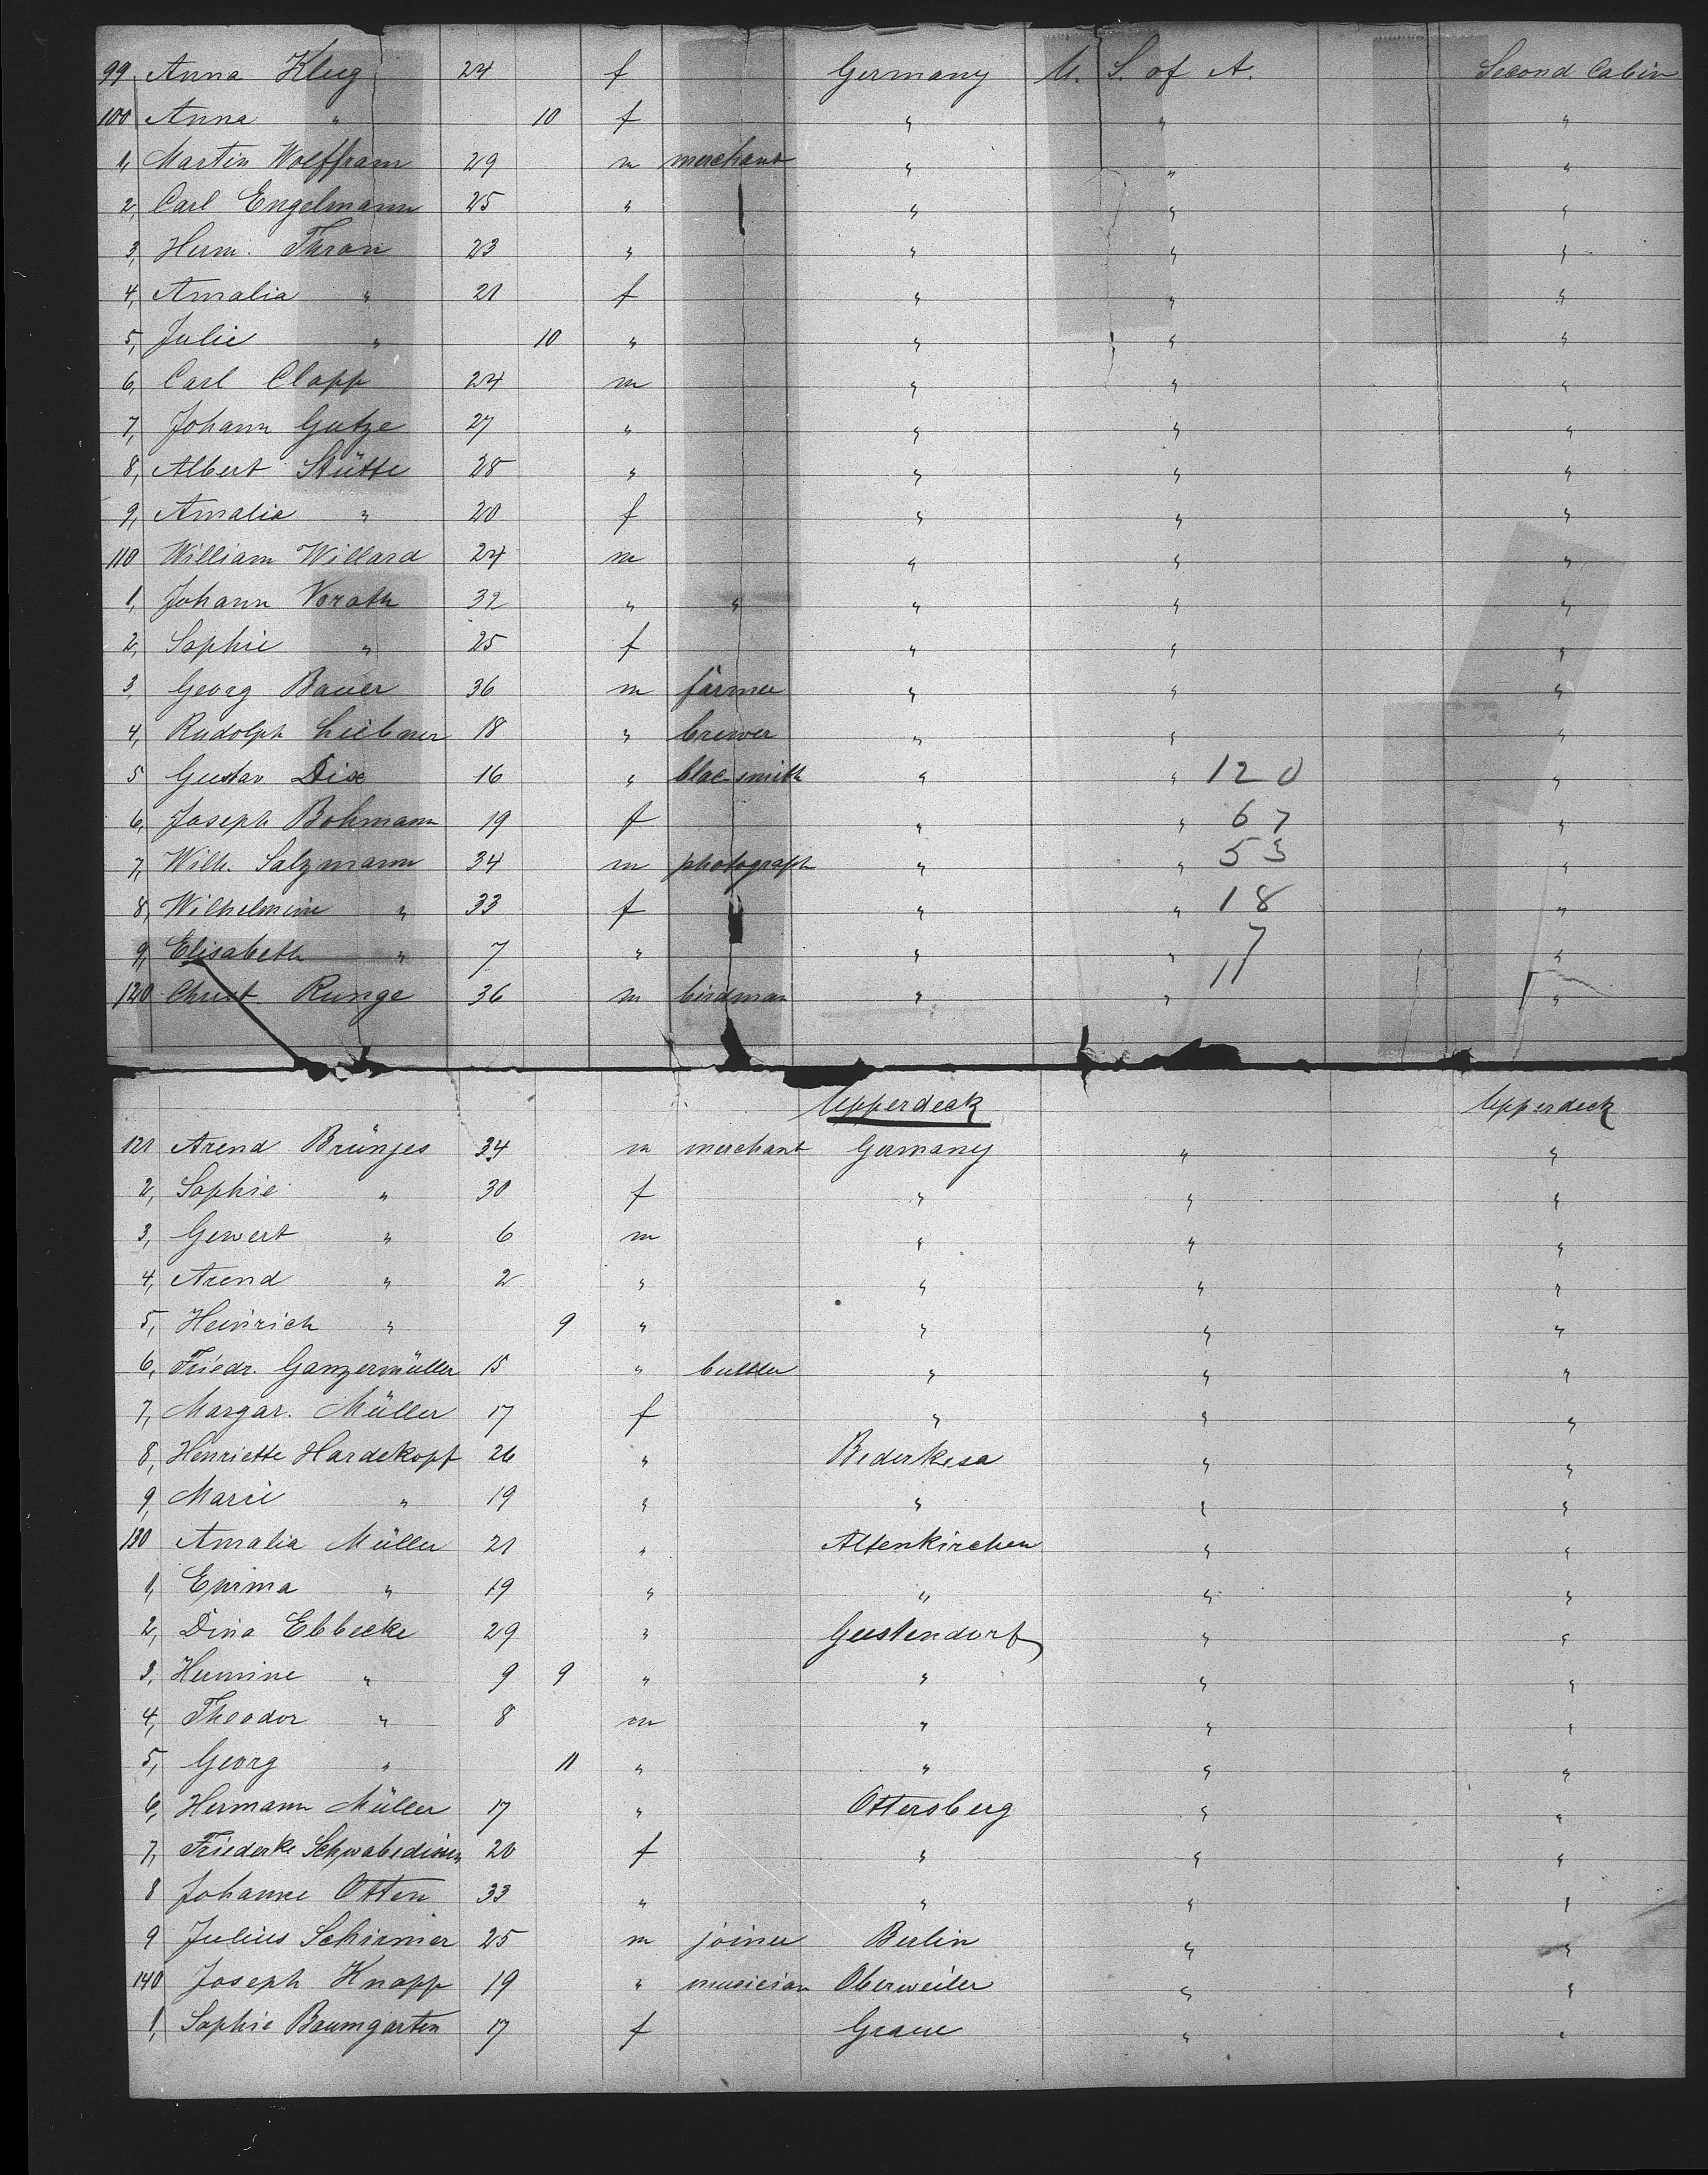 99 Anna Klug 24 f Germany U. S. of A. Second Cabin
100 Anna " 10 f " " "
1, Martin Wolffram 29 m merchant " " "
2, Carl Engelmann 25 " " " "
3, Herm. Thran 23 " " " "
4, Amalia " 21 f " " "
5, Julie " 10 " " " "
6, Carl Clapp 24 m " " "
7, Johann Gutze 27 " " " "
8, Albert Stütte 28 " " " "
9, Amalie " 20 f " " "
110 William Willard 24 m " " "
1, Johann Vorath 32 " " " " "
2, Sophie " 25 f " " "
3, Georg Bauer 36 m farmer " " "
4, Rudolph Liebner 18 " brewer " " "
5 Gustav Dix 16 " blac-smith " " 120 "
6, Joseph Bohmann 19 f " " 67 "
7, Wilh. Salzmann 34 m photograph " " 53 "
8, Wilhelmine " 33 f " " 18 "
9, Elisabeth " 7 " " " 17 "
120 Christ Runge 36 m birdman " " "
Upperdeck Upperdeck
121 Arend Brünjes 34 m merchant Germany " "
2, Sophie " 30 f " " "
3, Gewert " 6 m " " "
4, Arend " 2 " " " "
5, Heinrich " 9 " " " "
6, Friedr. Ganzermüller 15 " " " "
7, Margar. Müller 17 f " " "
8, Henriette Hardekopf 26 " Bederkesa " "
9, Marie " 19 " " " "
130 Amalia Müller 21 " Altenkirchen " "
1, Emma " 19 " " " "
2, Dina Ebbecke 29 " Geestendorf " "
3, Hermine " 9 9 " " " "
4, Theodor " 8 m " " "
5, Georg " 11 " " " "
6, Hermann Müller 17 " Ottersberg " "
7, Friederke Schwabedissen 20 f " " "
8 Johanne Otten 33 " " " "
9 Julius Schirmer 25 m joiner Berlin " "
140 Joseph Knapp 19 " musician Oberweiler " "
1, Sophie Baumgarten 17 f Graue " "